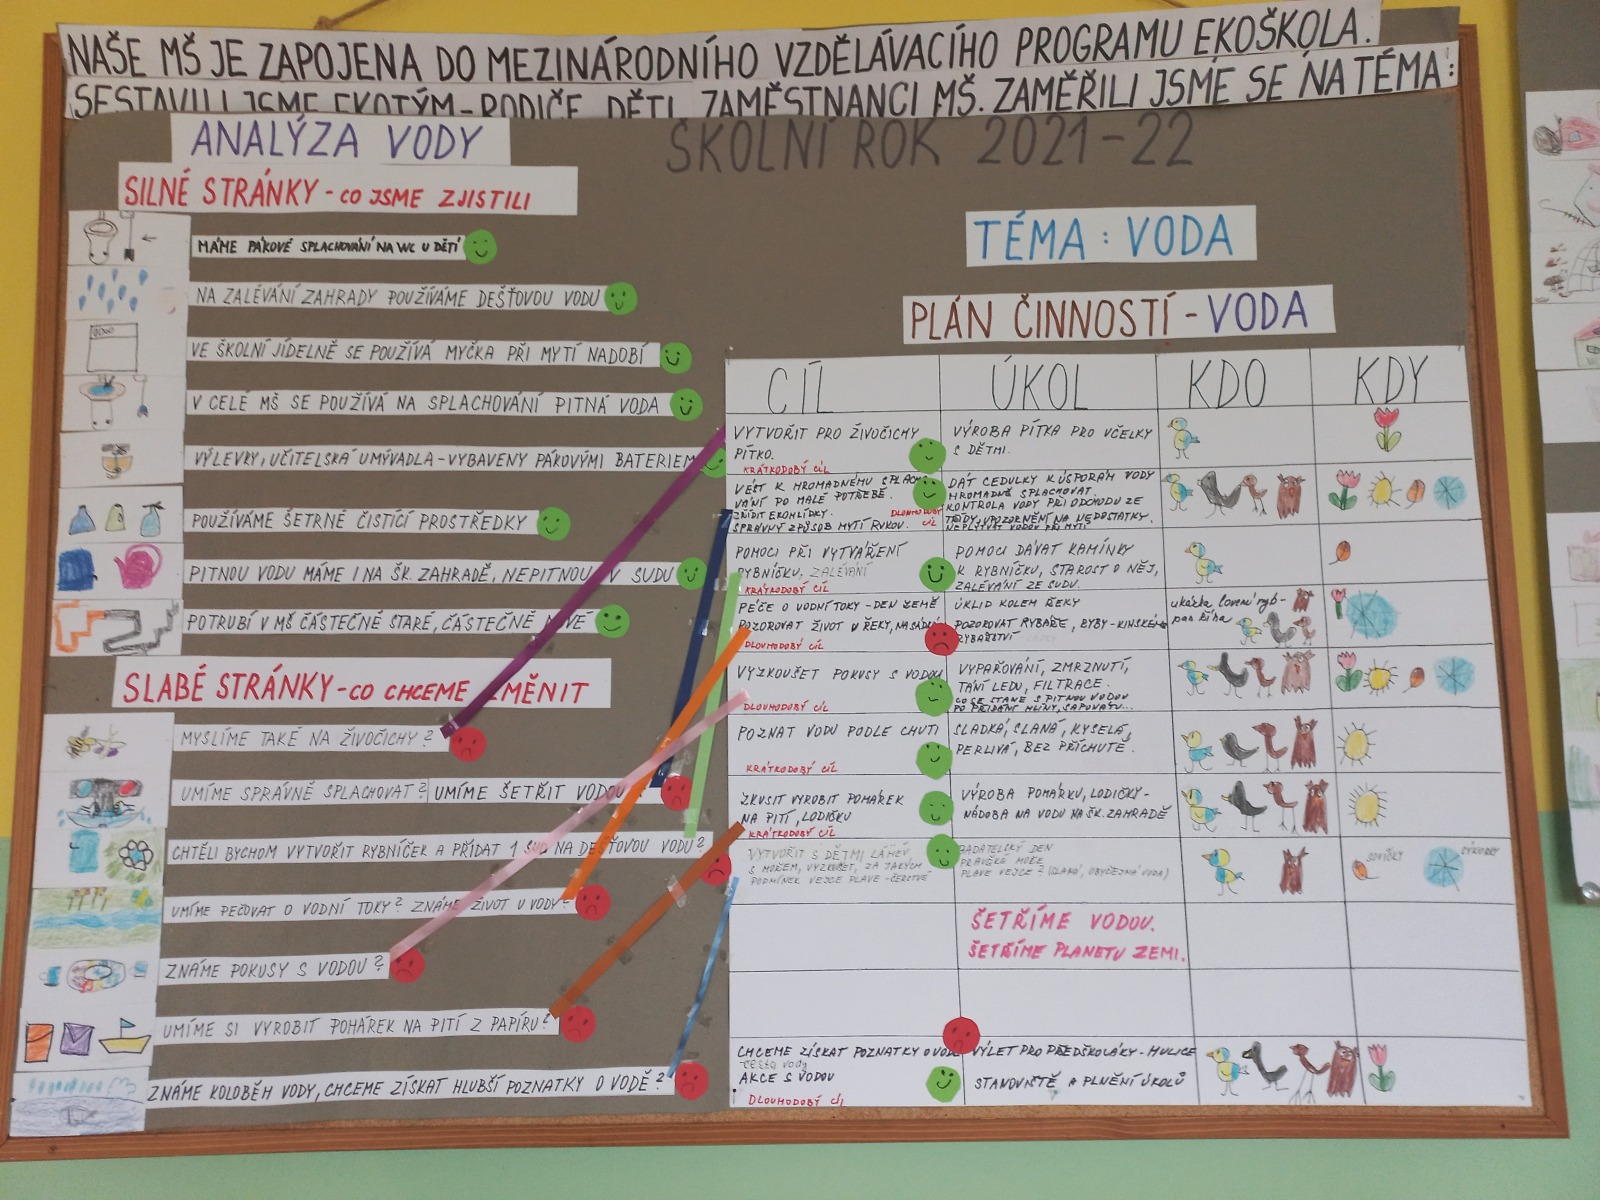 NAŠE MŠ JE ZAPOJENA DO MEZINÁRODNÍHO VZDĚLÁVACÍHO PROGRAMU EKOŠKOLA.
SESTAVILI JSME EKOTÝM-RODIČE, DĚTI, ZAMĚSTNANCI MŠ. ZAMĚŘILI JSME SE NA TÉMA:
ŠKOLNÍ ROK 2021-22
ANALÝZA VODY
SILNÉ STRÁNKY - CO JSME ZJISTILI
MÁME PÁKOVÉ SPLACHOVÁNÍ NA WC U DĚTÍ
NA ZALÉVÁNÍ ZAHRADY POUŽÍVÁME DEŠŤOVOU VODU
VE ŠKOLNÍ JÍDELNĚ SE POUŽÍVÁ MYČKA PŘI MYTÍ NÁDOBÍ
V CELÉ MŠ SE POUŽÍVÁ NA SPLACHOVÁNÍ PITNÁ VODA
VÝLEVKY, UČITELSKÁ UMÝVADLA - VYBAVENY PÁKOVÝMI BATERIEM
POUŽÍVÁME ŠETRNÉ ČISTÍCÍ PROSTŘEDKY
PITNOU VODU MÁME I NA ŠK. ZAHRADĚ, NEPITNOU V SUDU
POTRUBÍ V MŠ ČÁSTEČNĚ STARÉ, ČÁSTEČNĚ NOVÉ
SLABÉ STRÁNKY - CO CHCEME ZMĚNIT
MYSLÍME TAKÉ NA ŽIVOČICHY?
UMÍME SPRÁVNĚ SPLACHOVAT? UMÍME ŠETŘIT VODOU
CHTĚLI BYCHOM VYTVOŘIT RYBNÍČEK A PŘIDAT 1 SUD NA DEŠŤOVOU VODU?
UMÍME PEČOVAT O VODNÍ TOKY? ZNÁME ŽIVOT U VODY?
ZNÁME POKUSY S VODOU?
UMÍME SI VYROBIT POHÁREK NA PITÍ Z PAPÍRU?
ZNÁME KOLOBĚH VODY, CHCEME ZÍSKAT HLUBŠÍ POZNATKY O VODĚ?
TÉMA: VODA
PLÁN ČINNOSTÍ - VODA
CÍL ÚKOL KDO KDY
VYTVOŘIT PRO ŽIVOČICHY
PÍTKO.
KRÁTKODOBÝ CÍL
VÝROBA PÍTKA PRO VČELKY
S DĚTMI.
VÉST K HROMADNÉMU SPLACHO
VÁNÍ PO MALÉ POTŘEBĚ.
ZŘÍDIT EKOHLÍDKY. DLOUHODOBÝ
SPRÁVNÝ ZPŮSOB MYTÍ RUKOU. CÍL
DÁT CEDULKY K ÚSPORÁM VODY
HROMADNĚ SPLACHOVAT.
KONTROLA VODY PŘI ODCHODU ZE
TŘÍDY, UPOZORNĚNÍ NA NEDOSTATKY.
NEPLÝTVAT VODOU PŘI MYTÍ
POMOCI PŘI VYTVÁŘENÍ
RYBNÍČKU, ZALÉVÁNÍ
KRÁTKODOBÝ CÍL
POMOCI DÁVAT KAMÍNKY
K RYBNÍČKU, STAROST O NĚJ,
ZALÉVÁNÍ ZE SUDU.
PÉČE O VODNÍ TOKY - DEN ZEMĚ
POZOROVAT ŽIVOT U ŘEKY,
DLOUHODOBÝ CÍL
ÚKLID KOLEM ŘEKY
POZOROVAT RYBÁŘE, RYBY - KINSKÉHO
RYBÁŘSTVÍ
ukázka lovení ryb-
pan Říha
VYZKOUŠET POKUSY S VODOU
DLOUHODOBÝ CÍL
VYPAŘOVÁNÍ, ZMRZNUTÍ,
TÁNÍ LEDU, FILTRACE.
CO SE STANE S PITNOU VODOU
PO PŘIDÁNÍ HLÍNY, SAPONÁTU...
POZNAT VODU PODLE CHUTI
KRÁTKODOBÝ CÍL
SLADKÁ, SLANÁ, KYSELÁ,
PERLIVÁ, BEZ PŘÍCHUTĚ.
ZKUSIT VYROBIT POHÁREK
NA PITÍ, LODIČKU
KRÁTKODOBÝ CÍL
VÝROBA POHÁRKU, LODIČKY-
NÁDOBA NA VODU NA ŠK. ZAHRADĚ
VYTVOŘIT S DĚTMI LÁHEV
S MOŘEM, VYZKOUŠET, ZA JAKÝCH
PODMÍNEK VEJCE PLAVE - ČERSTVÉ
BADATELSKÝ DEN
PLAVE VEJCE? (SLANÁ, OBYČEJNÁ VODA)
SOVIČKY SÝKORKY
ŠETŘÍME VODOU.
ŠETŘÍME PLANETU ZEMI.
CHCEME ZÍSKAT POZNATKY O VODĚ
cesta vody
AKCE S VODOU
DLOUHODOBÝ CÍL
VÝLET PRO PŘEDŠKOLÁKY - HULICE
STANOVIŠTĚ A PLNĚNÍ ÚKOLŮ